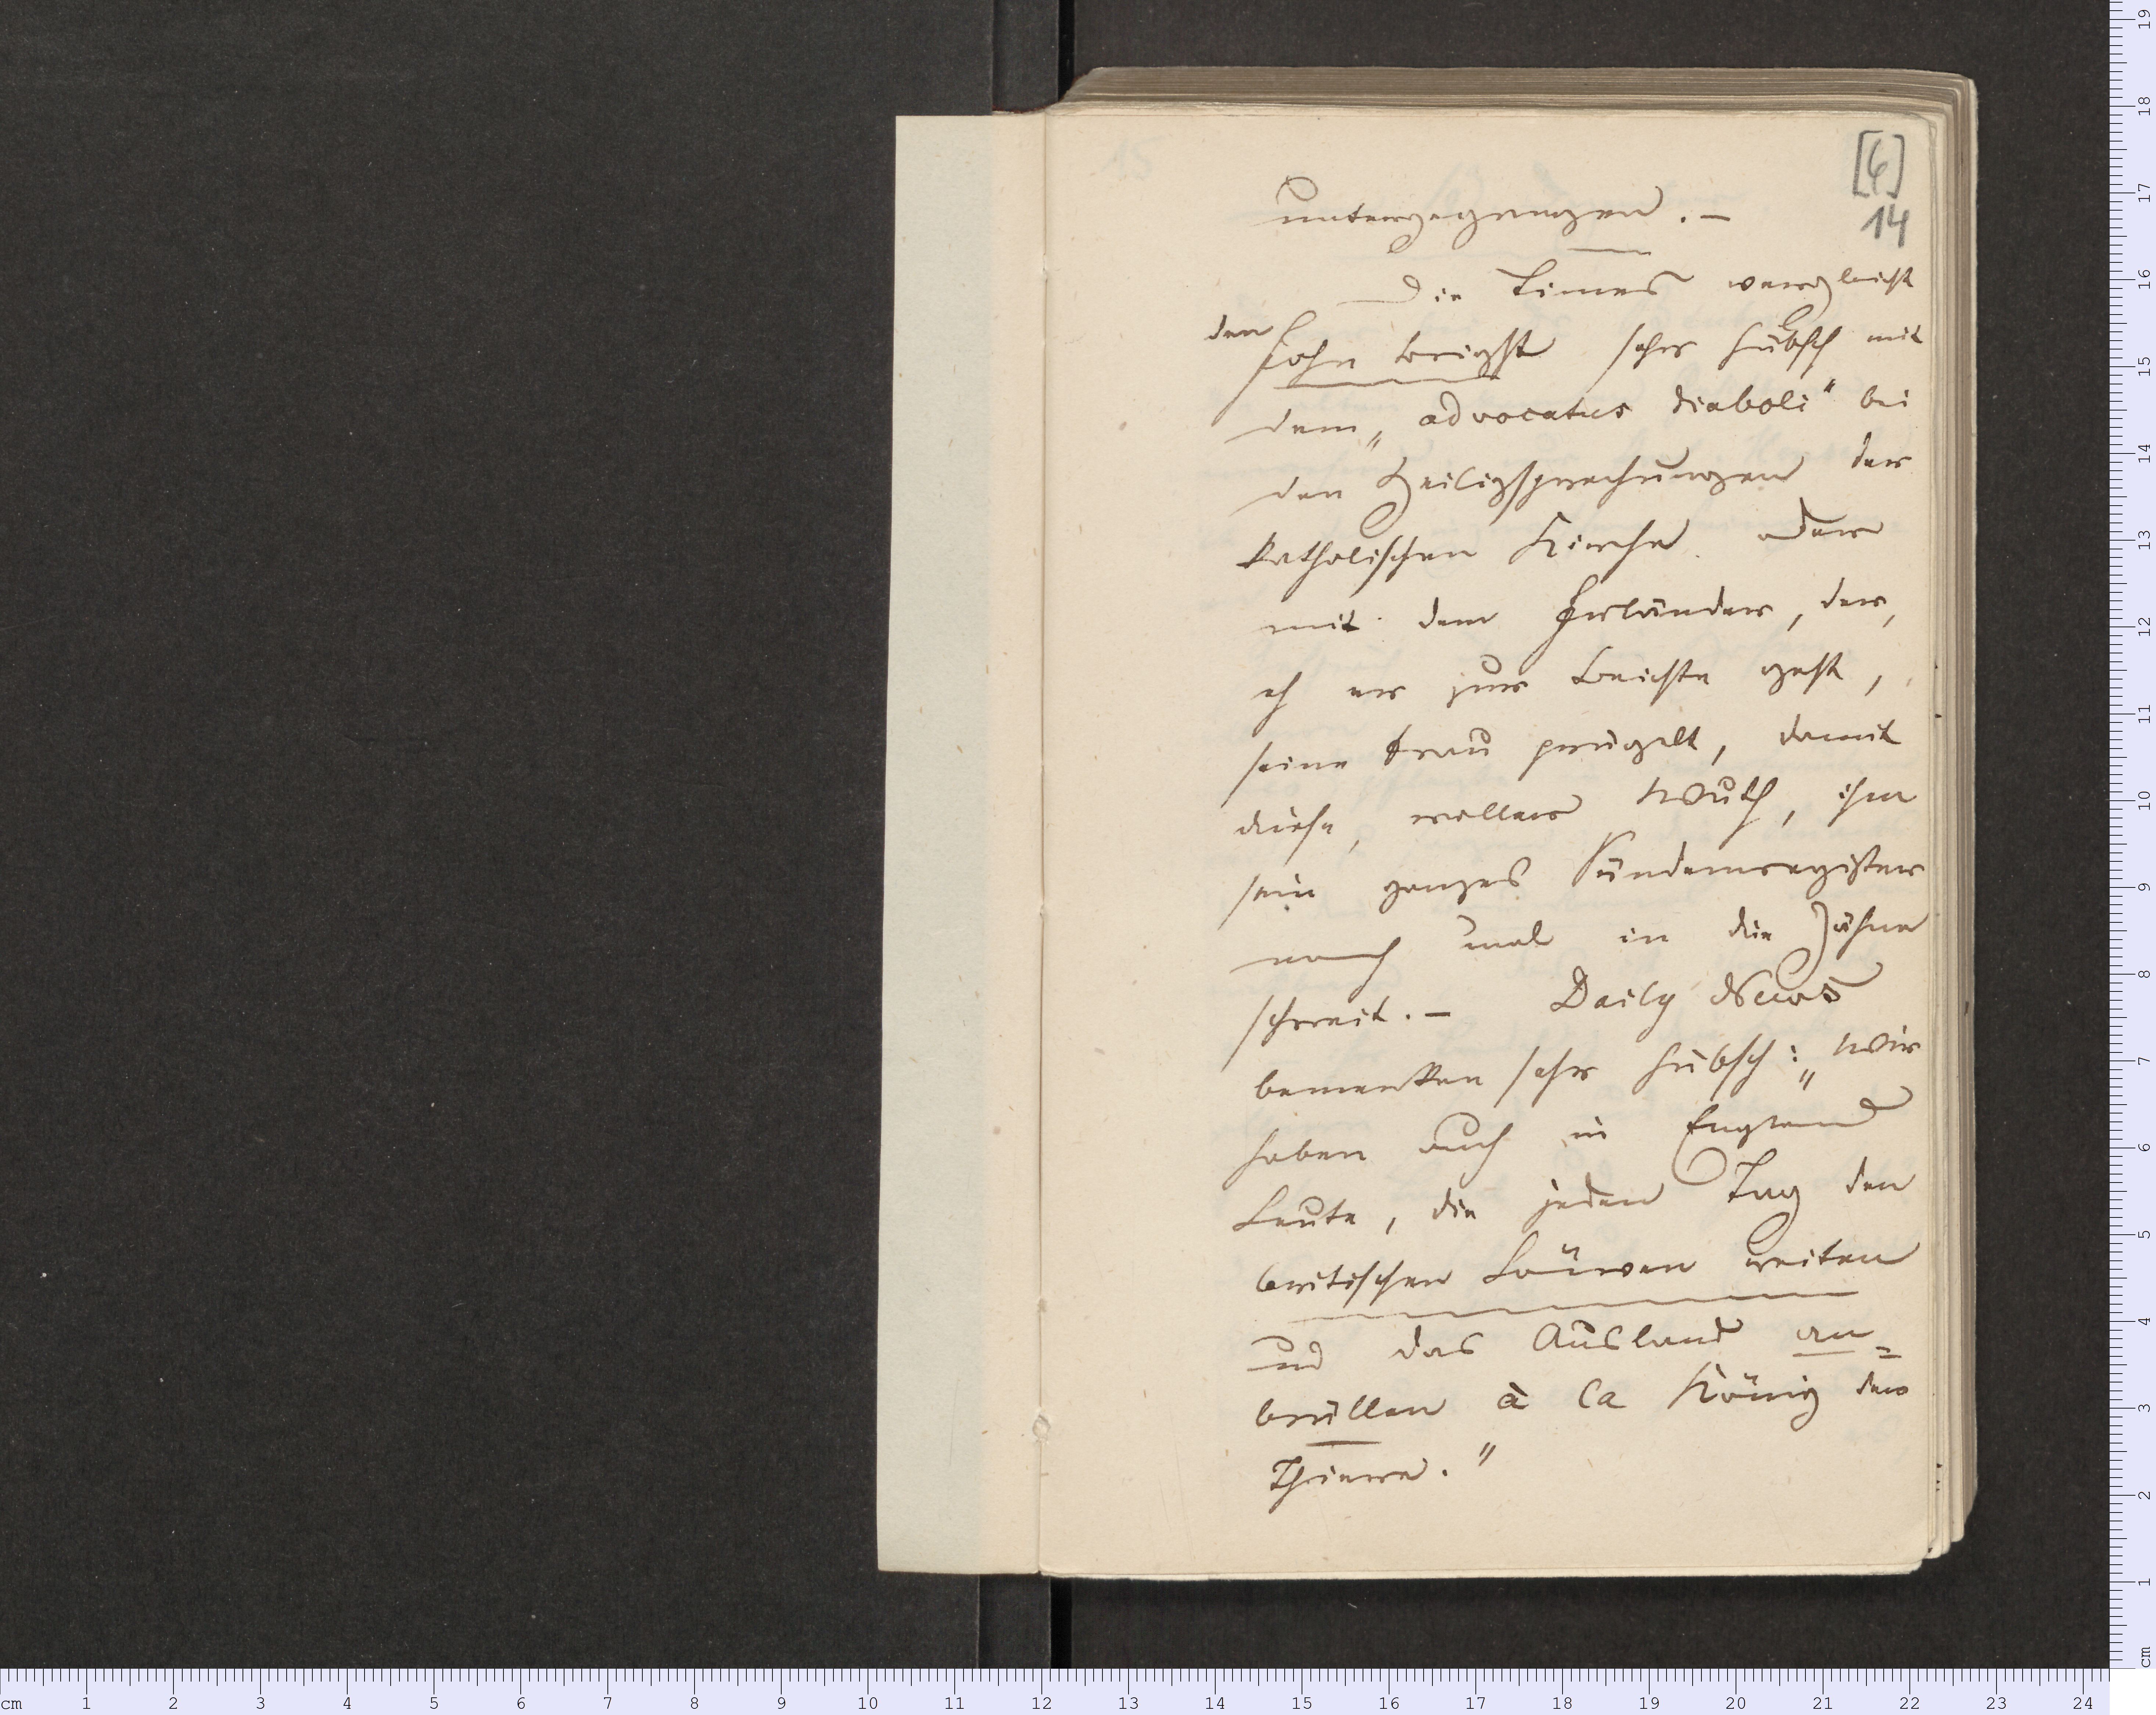 [6]
14
untergegangen. –
Die Times vergleicht
den John Bright sehr hübsch mit
dem „advocatus diaboli" bei
den Heiligsprechungen der
katholischen Kirche oder
mit dem Irländer, der,
eh er zur Beichte geht,
seine Frau prügelt, damit
diese, voller Wuth, ihm
sein ganzes Sündenregister
noch mal in die Zähne
schreit. – Daily News
bemerken sehr hübsch: „Wir
haben auch in England
Leute, die jeden Tag den
britischen Löwen reiten
und das Ausland an=
brüllen à la König der
Thiere."